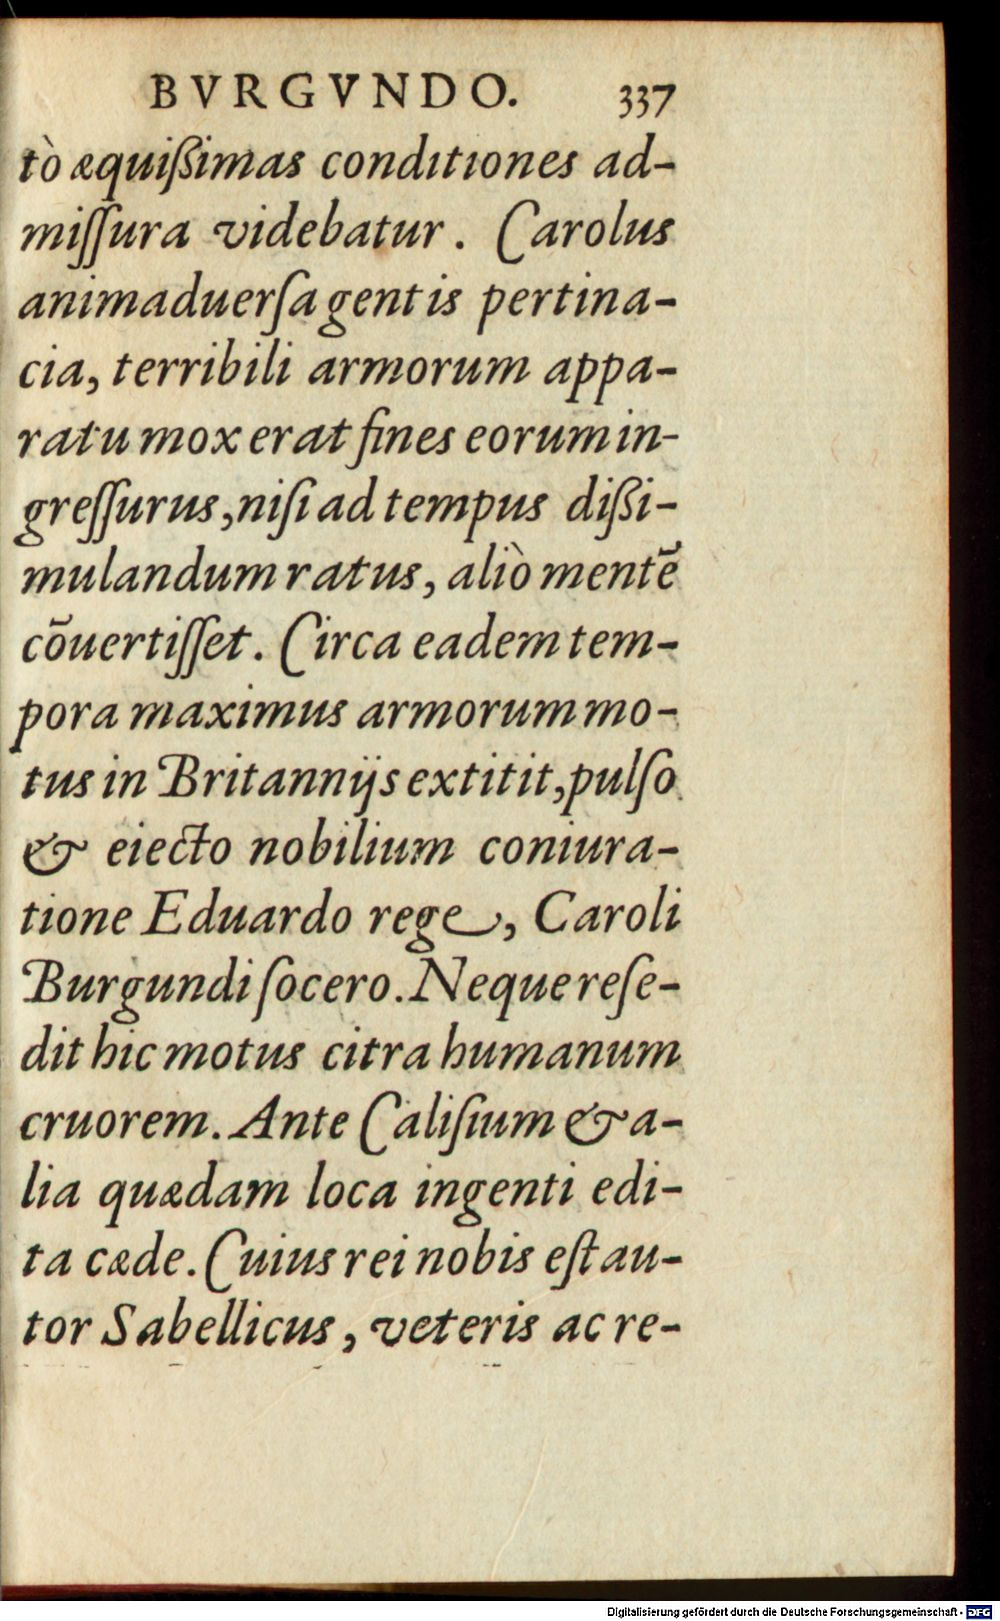 BVRGVNDO. 337
tò æquißimas conditiones ad-
miſſura videbatur. Carolus
animaduerſa gentis pertina-
cia, terribili armorum appa-
ratu mox erat fines eorum in-
greſſurus, niſi ad tempus dißi-
mulandum ratus, aliò mentē
cōuertiſſet. Circa eadem tem-
pora maximus armorum mo-
tus in Britannijs extitit, pulſo
& eiecto nobilium coniura-
tione Eduardo rege, Caroli
Burgundi ſocero. Neque reſe-
dit hic motus citra humanum
cruorem. Ante Caliſium & a-
lia quædam loca ingenti edi-
ta cæde. Cuius rei nobis eſt au-
tor Sabellicus, veteris ac re-
Digitalisierung gefördert durch die Deutsche Forschungsgemeinschaft - DFG